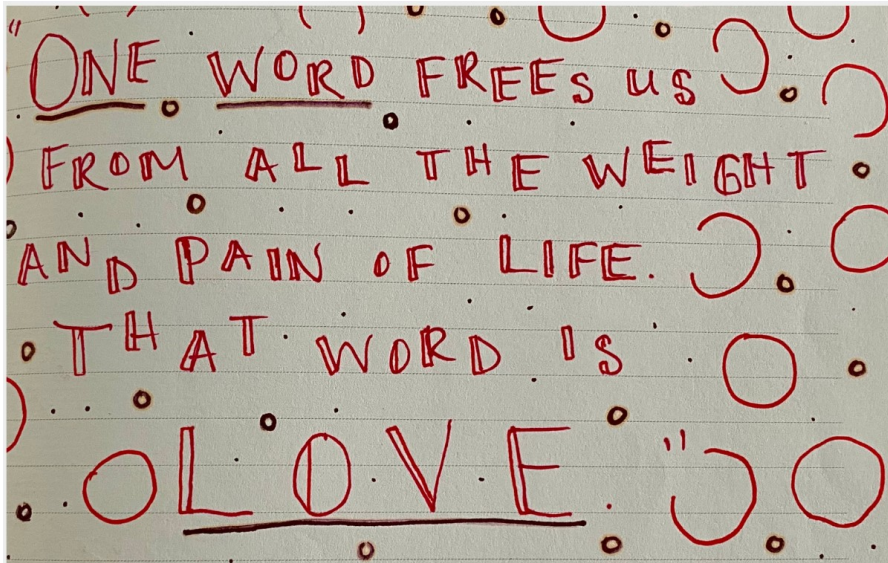 "ONE WORD FREES US
FROM ALL THE WEIGHT
AND PAIN OF LIFE.
THAT WORD IS
LOVE."